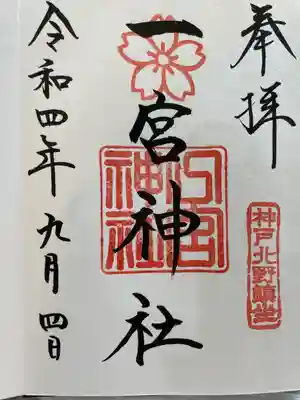 奉拝
神戸北野鎮座
一宮神社
一宮神社
令和四年九月四日